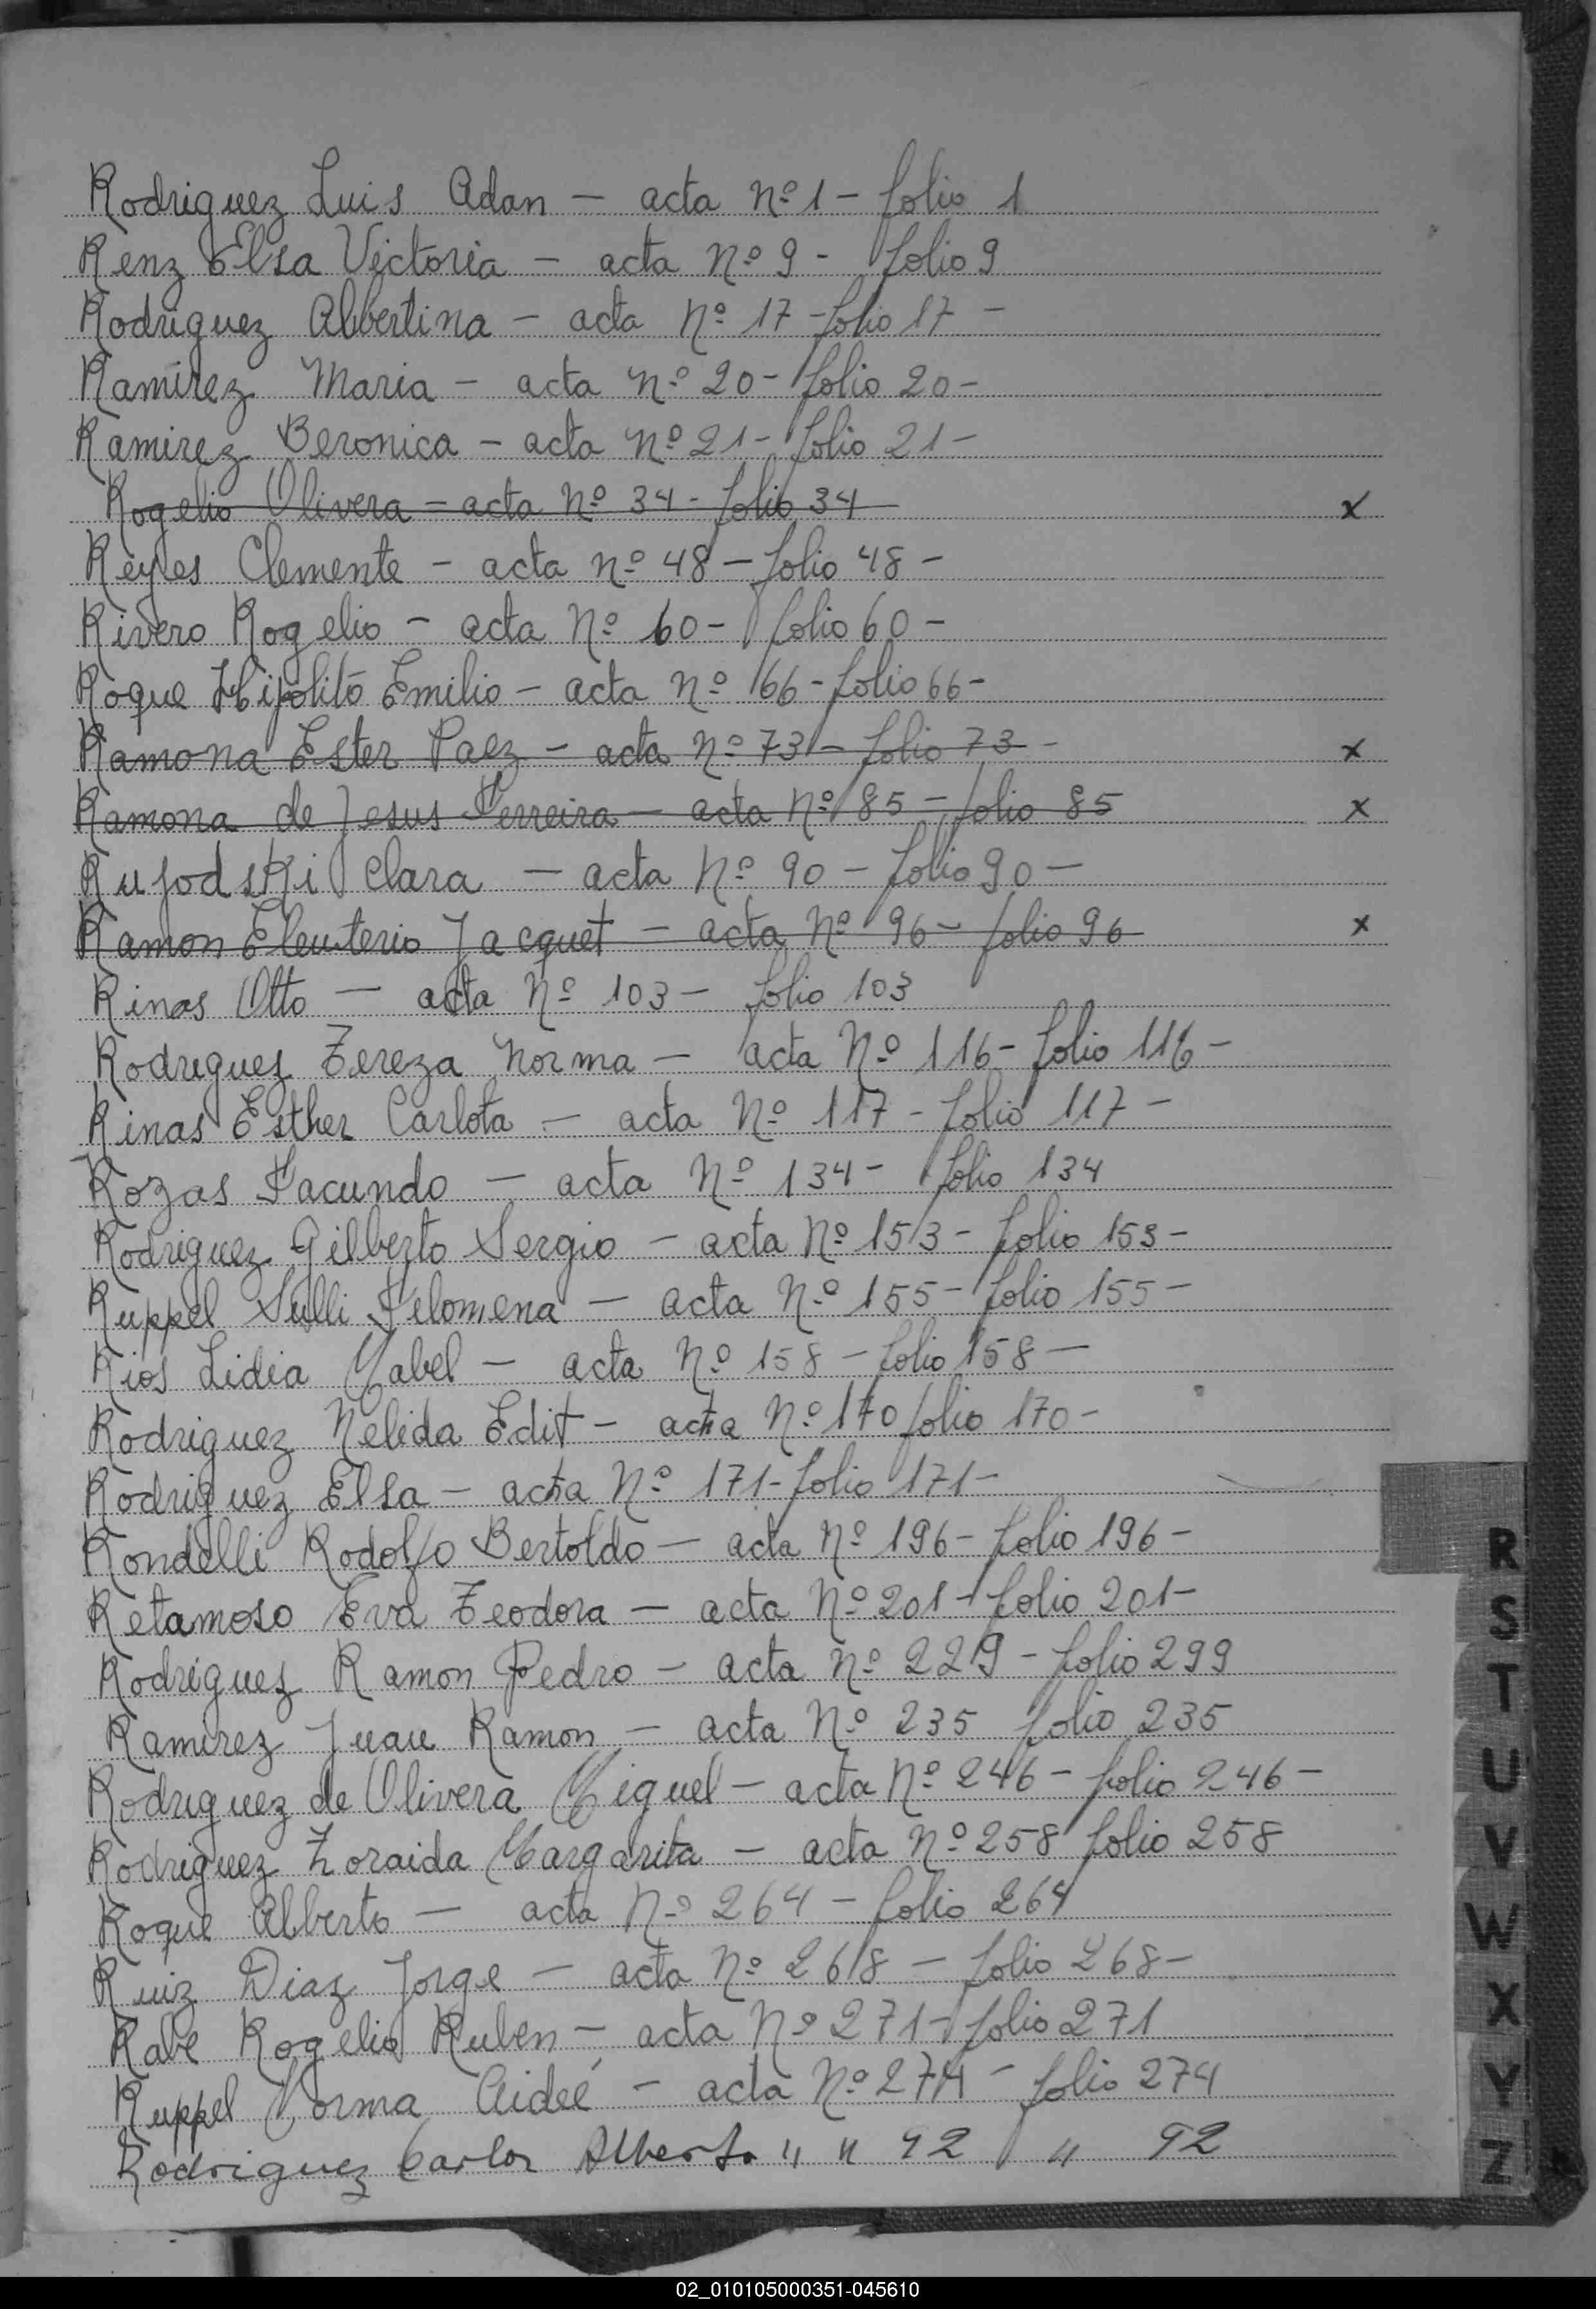 Rodriguez Luis Adan - acta nº 1 - folio 1
Renz Elsa Victoria - acta nº 9 - folio 9
Rodriguez Albertina - acta nº 17 - folio 17 -
Ramirez Maria - acta nº 20 - folio 20 -
Ramirez Beronica - acta nº 21 - folio 21 -
Rogelio Olivera - acta nº 34 - folio 34 x
Reyes Clemente - acta nº 48 - folio 48 -
Rivero Rogelio - acta nº 60 - folio 60 -
Roque Hipolito Emilio - acta nº 66 - folio 66 -
Ramona Ester Paez - acta nº 73 - folio 73 - x
Ramona de Jesus Ferreira - acta nº 85 - folio 85 x
Rujodski Clara - acta nº 90 - folio 90 -
Ramon Eleuterio Jacquet - acta nº 96 - folio 96 x
Rinas Otto - acta nº 103 - folio 103
Rodriguez Tereza Norma - acta nº 116 - folio 116 -
Rinas Esther Carlota - acta nº 117 - folio 117 -
Rozas Facundo - acta nº 134 - folio 134
Rodriguez Gilberto Sergio - acta nº 153 - folio 153 -
Ruppel Sulli Filomena - acta nº 155 - folio 155 -
Rios Lidia Mabel - acta nº 158 - folio 158 -
Rodriguez Nelida Edit - acta nº 170 folio 170 -
Rodriguez Elsa - acta nº 171 - folio 171 -
Rondelli Rodolfo Bertoldo - acta nº 196 - folio 196 -
Retamoso Eva Teodora - acta nº 201 - folio 201 -
Rodriguez Ramon Pedro - acta nº 229 - folio 299
Ramirez Juan Ramon - acta nº 235 folio 235
Rodriguez de Olivera Miguel - acta nº 246 - folio 246 -
Rodriguez Zoraida Margarita - acta nº 258 folio 258
Roque Alberto - acta nº 264 - folio 264
Ruiz Diaz Jorge - acta nº 268 - folio 268 -
Rabe Rogelio Ruben - acta nº 271 - folio 271
Ruppel Norma Aideé - acta nº 274 - folio 274
Rodriguez Carlos Alberto " " 92 " 92
R
S
T
U
V
W
X
Y
Z
02_010105000351-045610